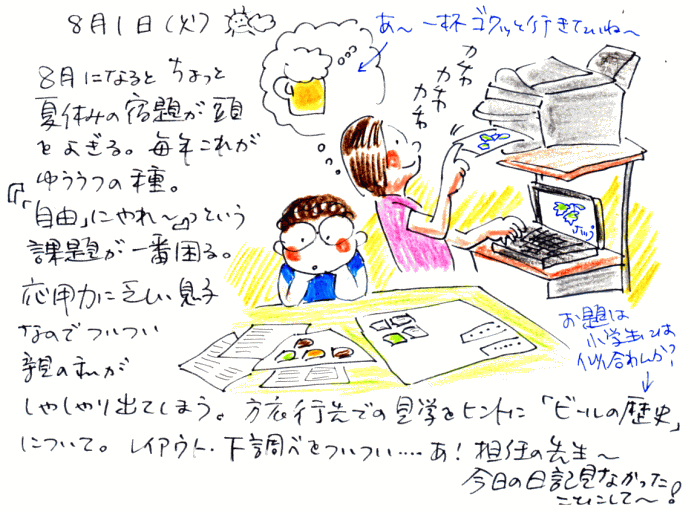 8月1日(火)
あ〜一杯ゴクッと行きていね〜
カチャ
カチャ
カチャ
8月になると ちょっと
夏休みの宿題が頭
をよぎる。毎年これが
ゆううつの種。
『「自由」にやれ〜』っという
課題が一番困る。
応用力に乏しい息子
なのでついつい
親の私が
しゃしゃり出てしまう。方衣行先での見学をヒントに「ビールの歴史」
について。レイアウト・下調べをついつい……あ!担任の先生〜
今日の日記見なかった
ことにして〜!
お題は
小学生には
似合わんか?